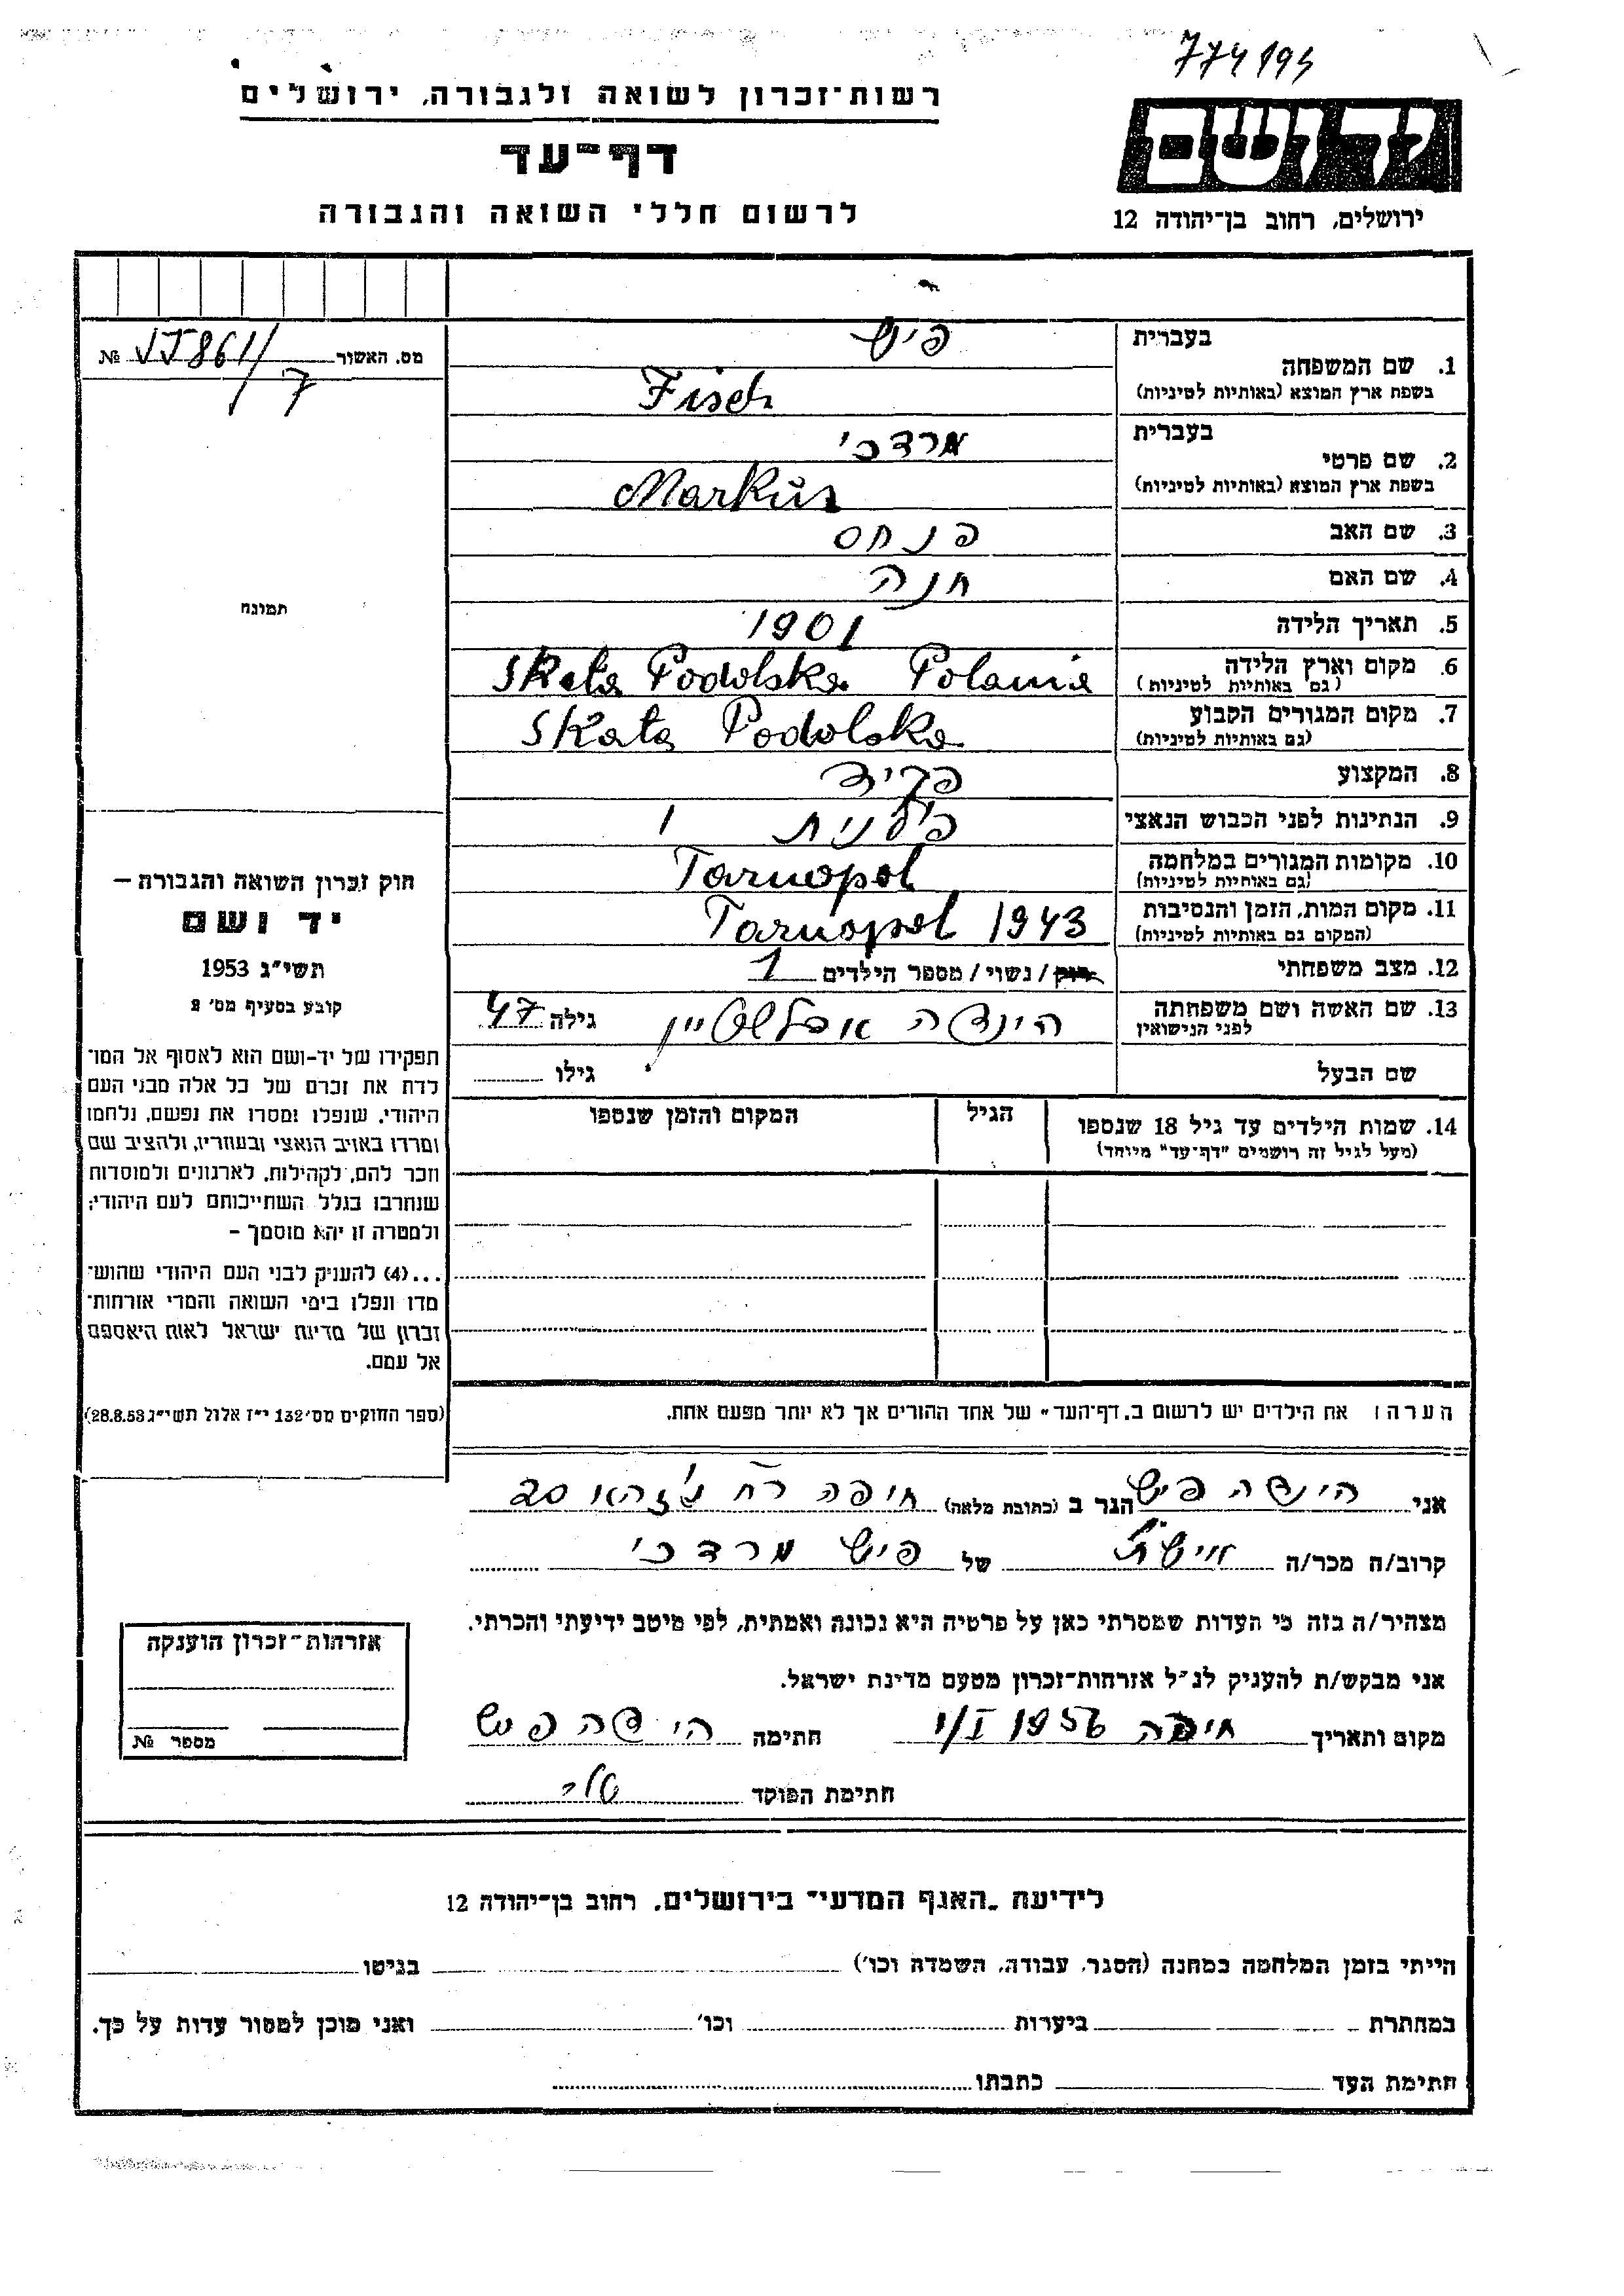 774193
רשות־זכרון לשואה ולגבורה, ירושלים
דף־עד
לרשום חללי השואה והגבורה
יד ושם
ירושלים, רחוב בן־יהודה 12
מס. האשור 861/7 №
תמונה
חוק זכרון השואה והגבורה –
יד ושם
תשי״ג 1953
קובע בסעיף מס׳ 2
תפקידו של יד-ושם הוא לאסוף אל המו־
לדת את זכרם של כל אלה מבני העם
היהודי, שנפלו ומסרו את נפשם, נלחמו
ומרדו באויב הנאצי ובעוזריו, ולהציב שם
וזכר להם, לקהילות, לארגונים ולמוסדות
שנחרבו בגלל השתייכותם לעם היהודי;
ולמטרה זו יהא מוסמך –
...(4) להעניק לבני העם היהודי שהוש־
מדו ונפלו בימי השואה והמרי אזרחות־
זכרון של מדינת ישראל לאות היאספם
אל עמם.
(ספר החוקים מס׳ 132 י״ז אלול תשי״ג 28.8.53)
בעברית פיש
1. שם המשפחה
בשפת ארץ המוצא (באותיות לטיניות) Fisch
בעברית מרדכי
2. שם פרטי
בשפת ארץ המוצא (באותיות לטיניות) Markus
3. שם האב פנחס
4. שם האם חנה
5. תאריך הלידה 1901
6. מקום וארץ הלידה Skała Podolska Polania
(גם באותיות לטיניות)
7. מקום המגורים הקבוע Skała Podolska
(גם באותיות לטיניות)
8. המקצוע פקיד
9. הנתינות לפני הכבוש הנאצי פולנית
10. מקומות המגורים במלחמה Tarnopol
(גם באותיות לטיניות)
11. מקום המות, הזמן והנסיבות Tarnopol 1943
(המקום גם באותיות לטיניות)
12. מצב משפחתי רווק / נשוי / מספר הילדים 1
13. שם האשה ושם משפחתה הינדה גילה 47
לפני הנישואין
שם הבעל גילו
14. שמות הילדים עד גיל 18 שנספו הגיל המקום והזמן שנספו
(מעל לגיל זה רושמים "דף־עד" מיוחד)
הערה: את הילדים יש לרשום ב„דף־העד״ של אחד ההורים אך לא יותר מפעם אחת.
אני הינדה פיש הגר ב (כתובת מלאה) חיפה רח 20
קרוב/ה מכר/ה אישת של פיש מרדכי
מצהיר/ה בזה כי העדות שמסרתי כאן על פרטיה היא נכונה ואמתית, לפי מיטב ידיעתי והכרתי.
אני מבקש/ת להעניק לנ״ל אזרחות־זכרון מטעם מדינת ישראל.
מקום ותאריך חיפה 1/I 1956 חתימה הינדה פיש
חתימת הפוקד
אזרחות־זכרון הוענקה
מספר №
לידיעת „האגף המדעי״ בירושלים, רחוב בן־יהודה 12
הייתי בזמן המלחמה במחנה (הסגר, עבודה, השמדה וכו׳) בגיטו
במחתרת ביערות וכו׳ ואני מוכן למסור עדות על כך.
חתימת העד כתבתו